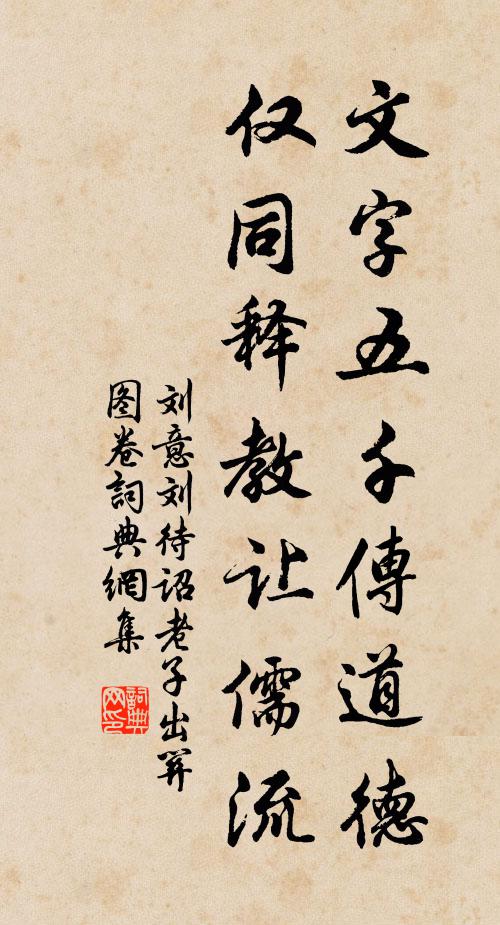 文字五千傳道德
仅同释教让儒流
刘意刘待诏老子出关
图卷詞典網集
詞典网印